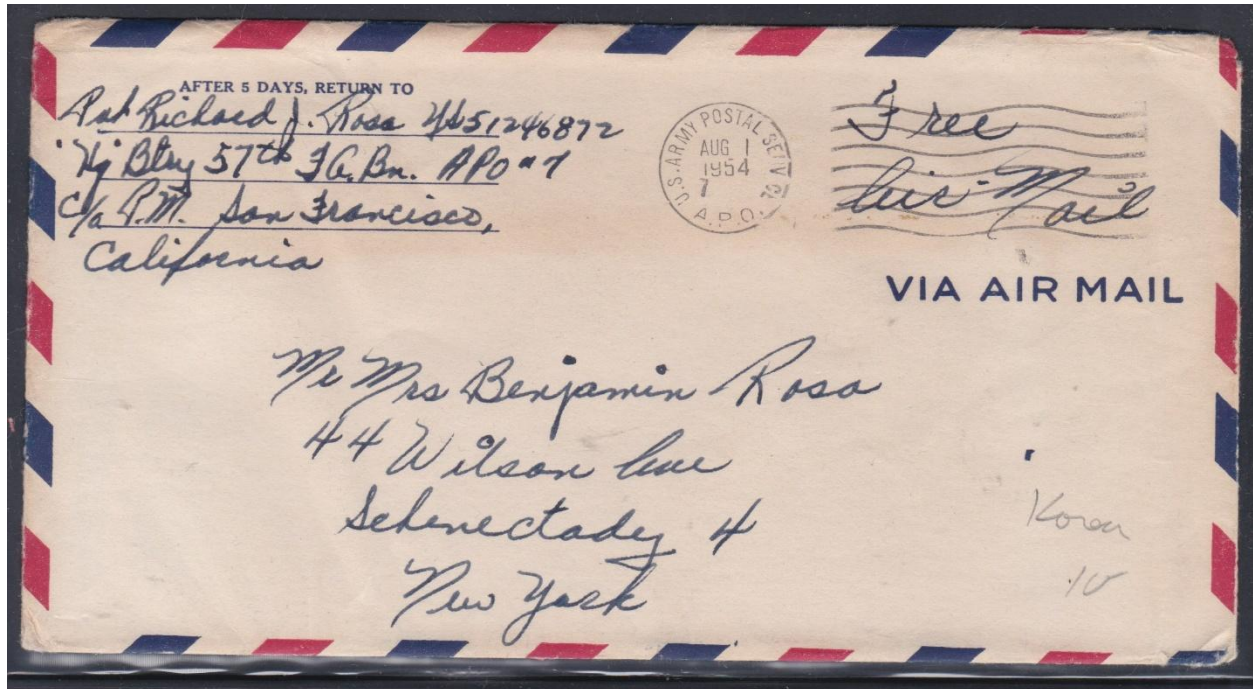 AFTER 5 DAYS, RETURN TO
Pvt Richard J. Rosa US51246872
Hq Btry 57th F.A. Bn. APO #7
c/o P.M. San Francisco,
California
U.S. ARMY POSTAL SERVICE
AUG 1
1954
7
A.P.O.
Free
Air Mail
VIA AIR MAIL
Mr Mrs Benjamin Rosa
44 Wilson Ave
Schenectady 4
New York
Korea
10